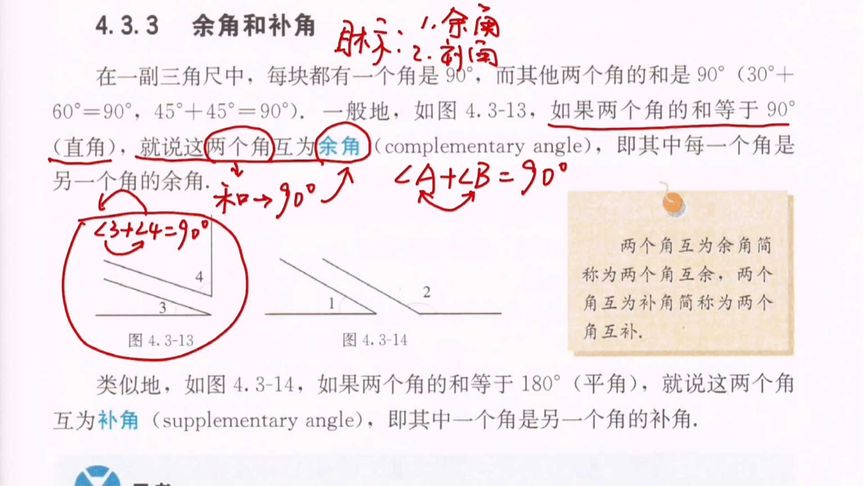 4.3.3 余角和补角
目标：1.余角
2.补角
在一副三角尺中，每块都有一个角是90°，而其他两个角的和是90°（30°+
60°=90°，45°+45°=90°）．一般地，如图4.3-13，如果两个角的和等于90°
（直角），就说这两个角互为余角（complementary angle），即其中每一个角是
另一个角的余角．
和→90°
∠A+∠B=90°
∠3+∠4=90°
4
3
图 4.3-13
1
2
图 4.3-14
两个角互为余角简
称为两个角互余，两个
角互为补角简称为两个
角互补．
类似地，如图4.3-14，如果两个角的和等于180°（平角），就说这两个角
互为补角（supplementary angle），即其中一个角是另一个角的补角．